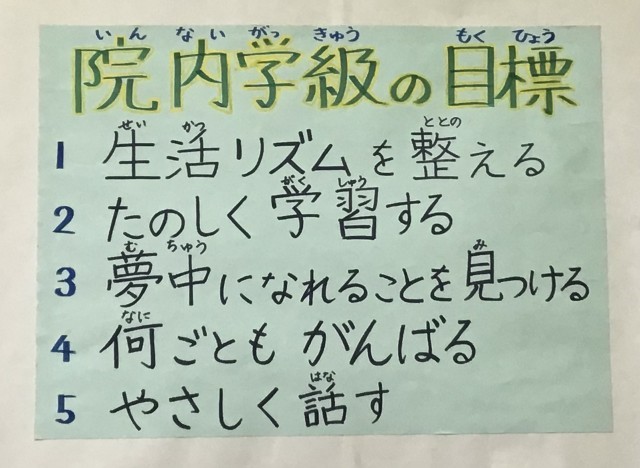 いんないがっきゅう もくひょう
院内学級の目標
せいかつ ととの
1 生活リズムを整える
がくしゅう
2 たのしく学習する
むちゅう み
3 夢中になれることを見つける
なに
4 何ごともがんばる
はな
5 やさしく話す